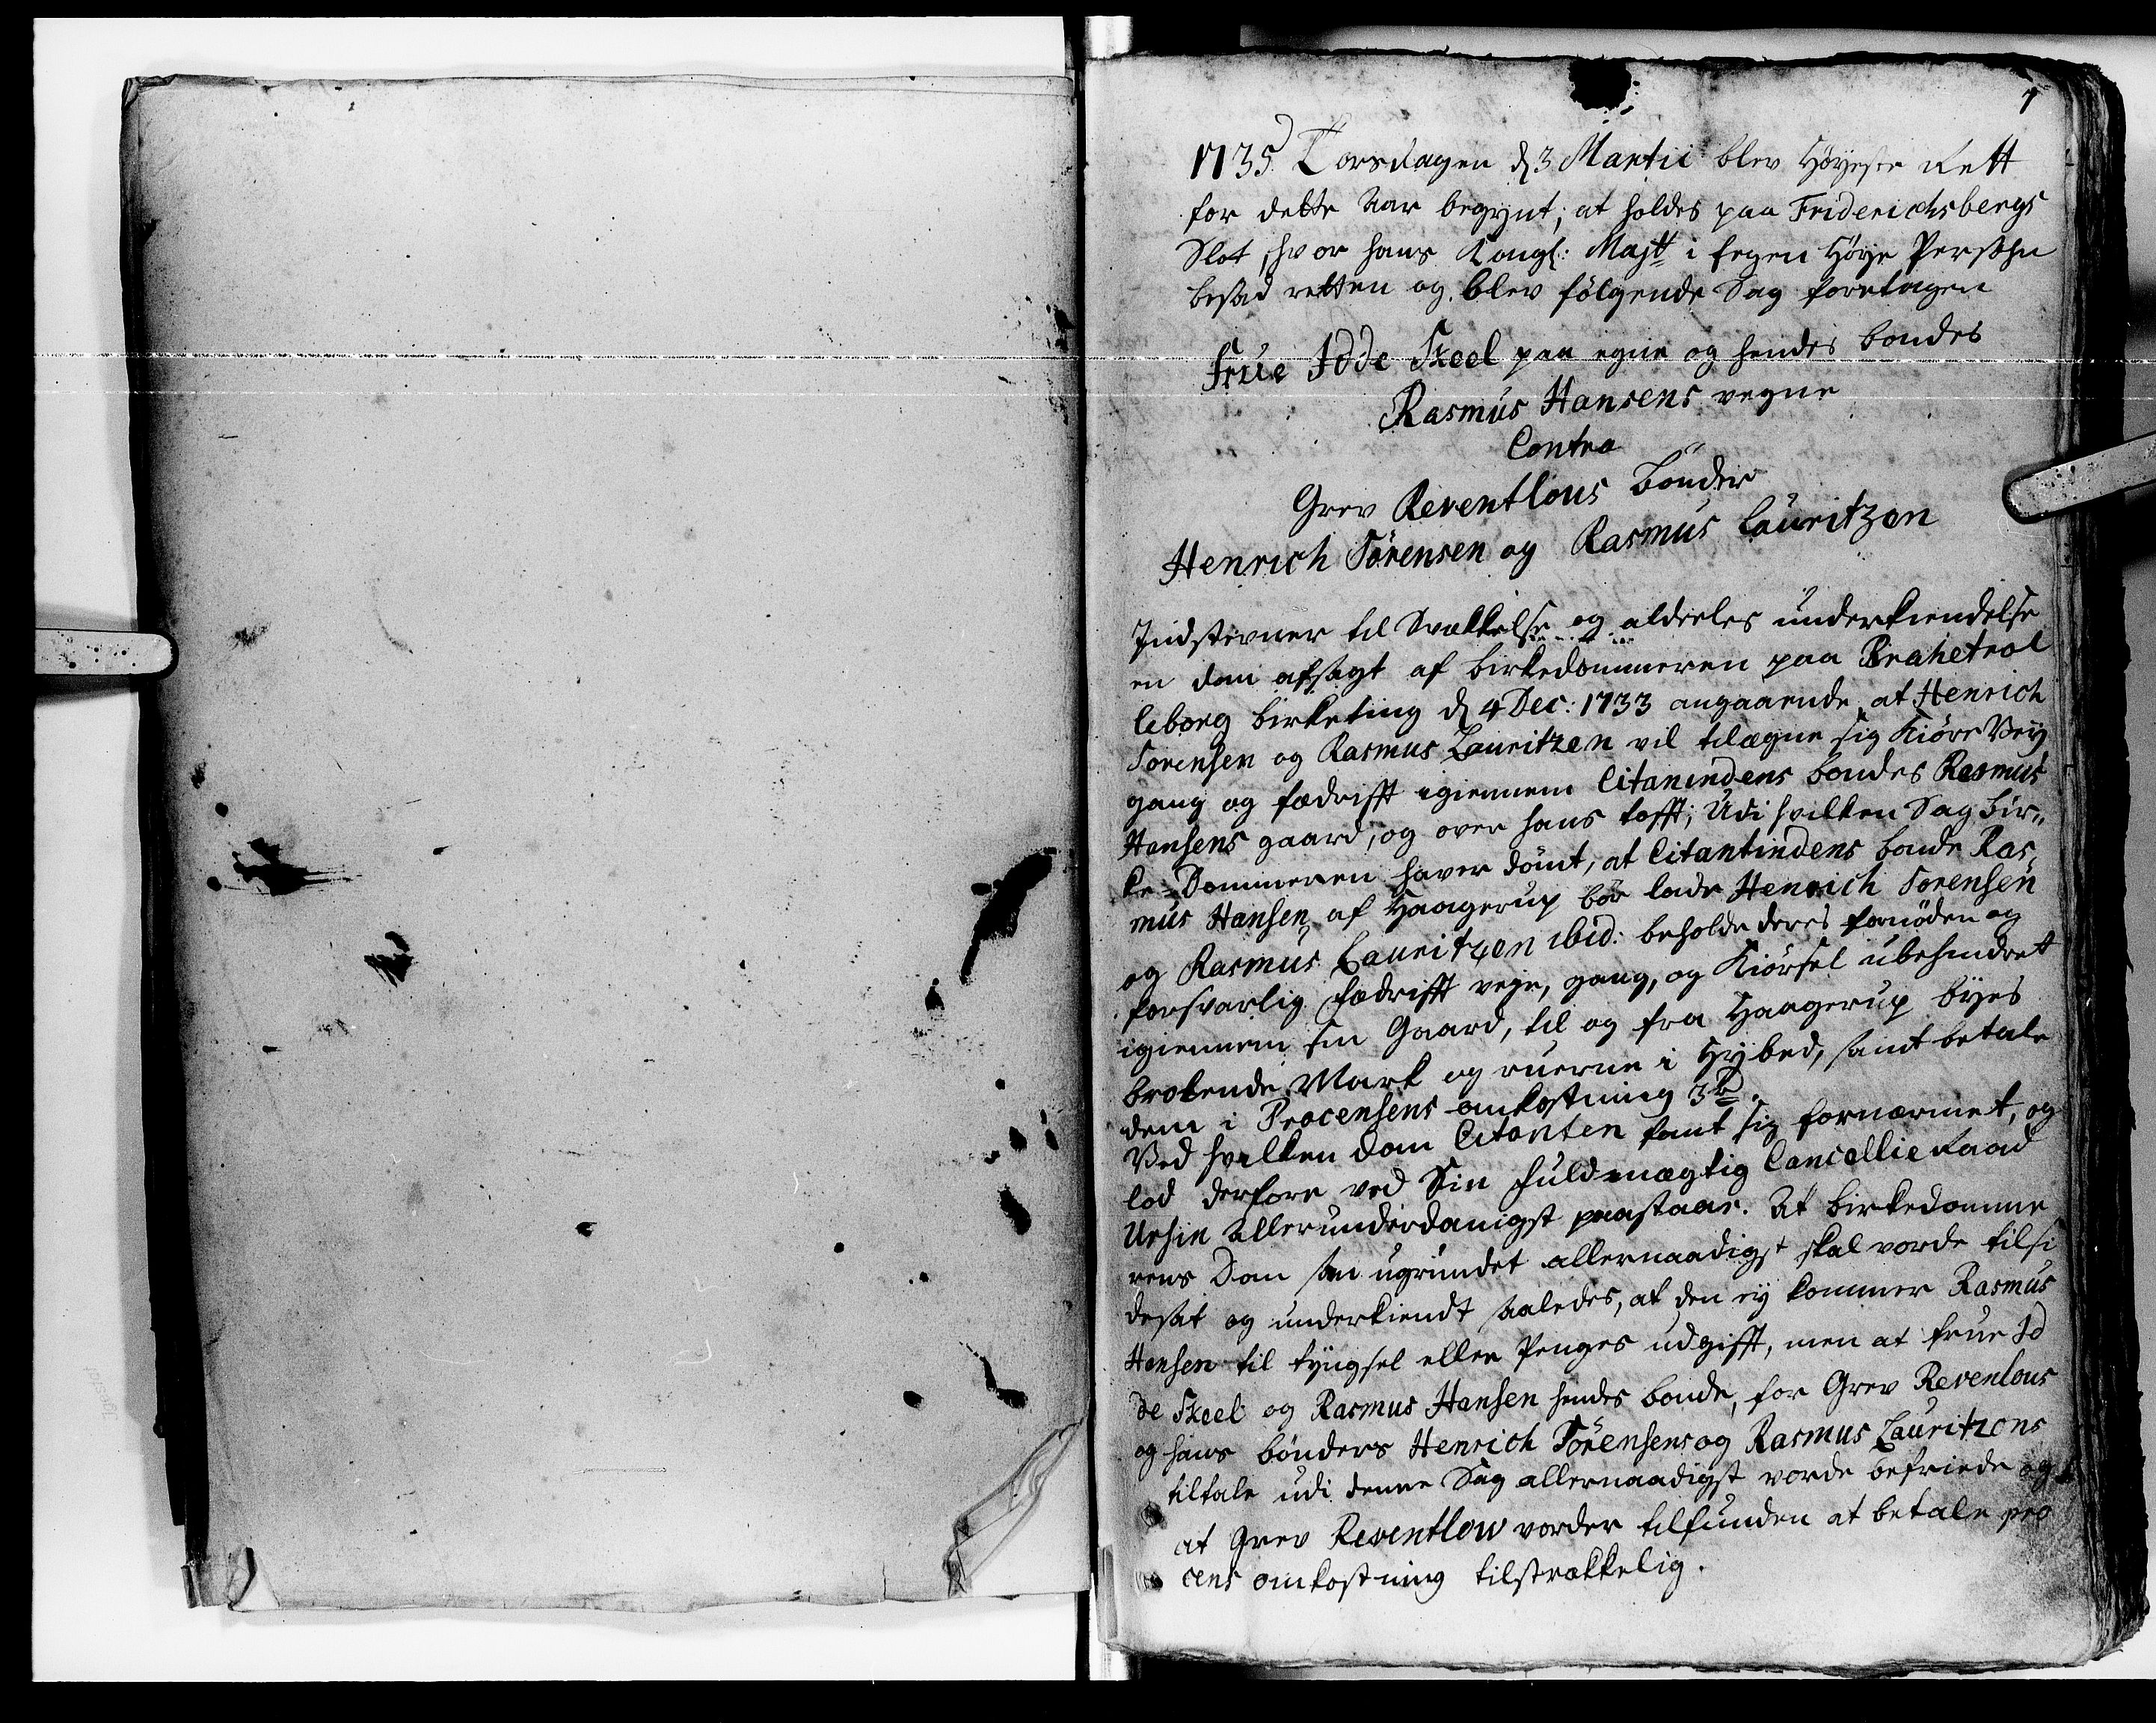 1
1735 Torsdagen d 3 Martii blev Høyeste Rett
for dette Aar begynt, at holdes paa Friderichsbergs
Slot, hvor hans Kongl: Majtt i Egen Høye Persohn
besad retten og blev følgende Sag foretagen
Frue Idde Skeel paa egne og hendes bondes
Rasmus Hansens vegne
Contra
Grev Reventlous bønder
Henrich Sørensen og Rasmus Lauritzen
Indstevner til Svækkelse og aldeeles underkiendelse
en dom afsagt af birkedommeren paa Brahetrol
leborg birketing d 4 Dec: 1733 angaaende at Henrich
Sørensen og Rasmus Lauritzen vil tilægne sig Kiøre Vey
gang og fædrifft igiennem Citanindens bondes Rasmus
Hansens gaard, og over hans tofft, Udi hvilken Sag bir„
ke-Dommeren haver dømt, at Citantindens bonde Ras„
mus Hansen af Haagerup bør lade Henrich Sørensen
og Rasmus Lauritzen ibid: beholde deres fornøden og
forsvarlig fædrifft veye, gang, og Kiørsel ubehindret
igiennem sin Gaard, til og fra Haagerup byes
brokende Mark og ruerne i Hybed, samt betale
dem i Processens omkostning 3
Ved hvilken dom Citanten fant sig fornærmet, og
lod derfore ved Sin fuldmægtig Cancellie Raad
Ursin allerunderdanigst paastaae. At birkedomme
rens Dom som ugrundet allernaadigst skal vorde tilsi
desat og underkiendt saaledes, at den ey kommer Rasmus
Hansen til tyngsel eller Penges udgifft, men at frue Id
de Skeel og Rasmus Hansen hendes bonde, for Grev Revenlous
og hans bønders Henrich Sørensens og Rasmus Lauritzens
tiltale udi denne Sag allernaadigst vorde befriede og
at Grev Reventlow vorder tilfunden at betale pro
cens omkostning tilstrækkelig.